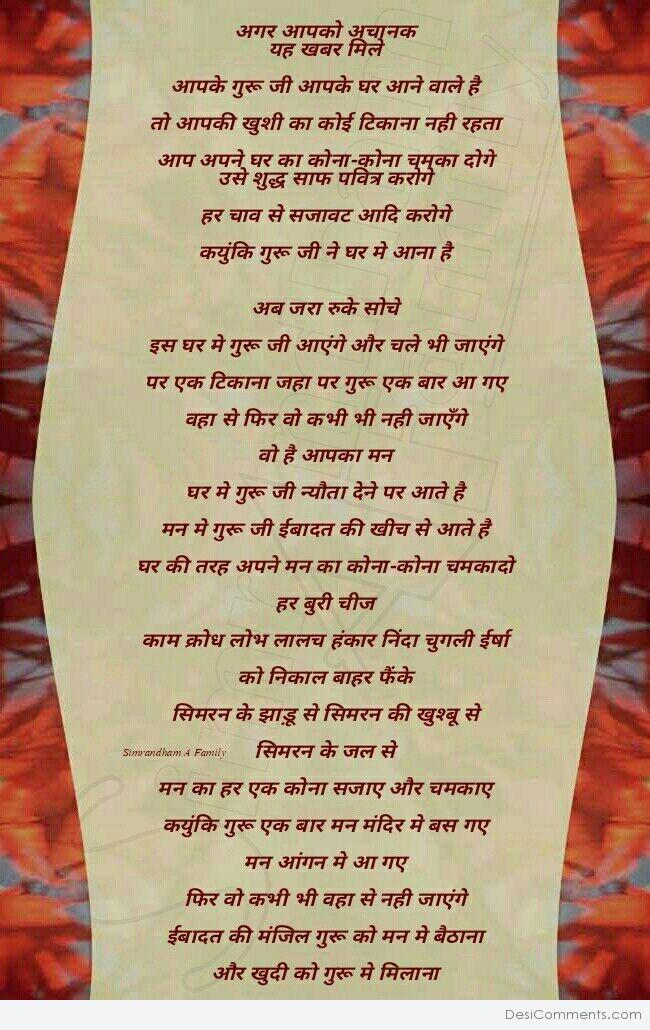 अगर आपको अचानक
यह खबर मिले
आपके गुरू जी आपके घर आने वाले है
तो आपकी खुशी का कोई टिकाना नही रहता
आप अपने घर का कोना-कोना चमका दोगे
उसे शुद्ध साफ पवित्र करोगे
हर चाव से सजावट आदि करोगे
कयुंकि गुरू जी ने घर मे आना है
अब जरा रुके सोचे
इस घर मे गुरू जी आएंगे और चले भी जाएंगे
पर एक टिकाना जहा पर गुरू एक बार आ गए
वहा से फिर वो कभी भी नही जाएँगे
वो है आपका मन
घर मे गुरू जी न्यौता देने पर आते है
मन मे गुरू जी ईबादत की खीच से आते है
घर की तरह अपने मन का कोना-कोना चमकादो
हर बुरी चीज
काम क्रोध लोभ लालच हंकार निंदा चुगली ईर्षा
को निकाल बाहर फैंके
सिमरन के झाडू से सिमरन की खुश्बू से
Simrandham A Family सिमरन के जल से
मन का हर एक कोना सजाए और चमकाए
कयुंकि गुरू एक बार मन मंदिर मे बस गए
मन आंगन मे आ गए
फिर वो कभी भी वहा से नही जाएंगे
ईबादत की मंजिल गुरू को मन मे बैठाना
और खुदी को गुरू मे मिलाना
DesiComments.com